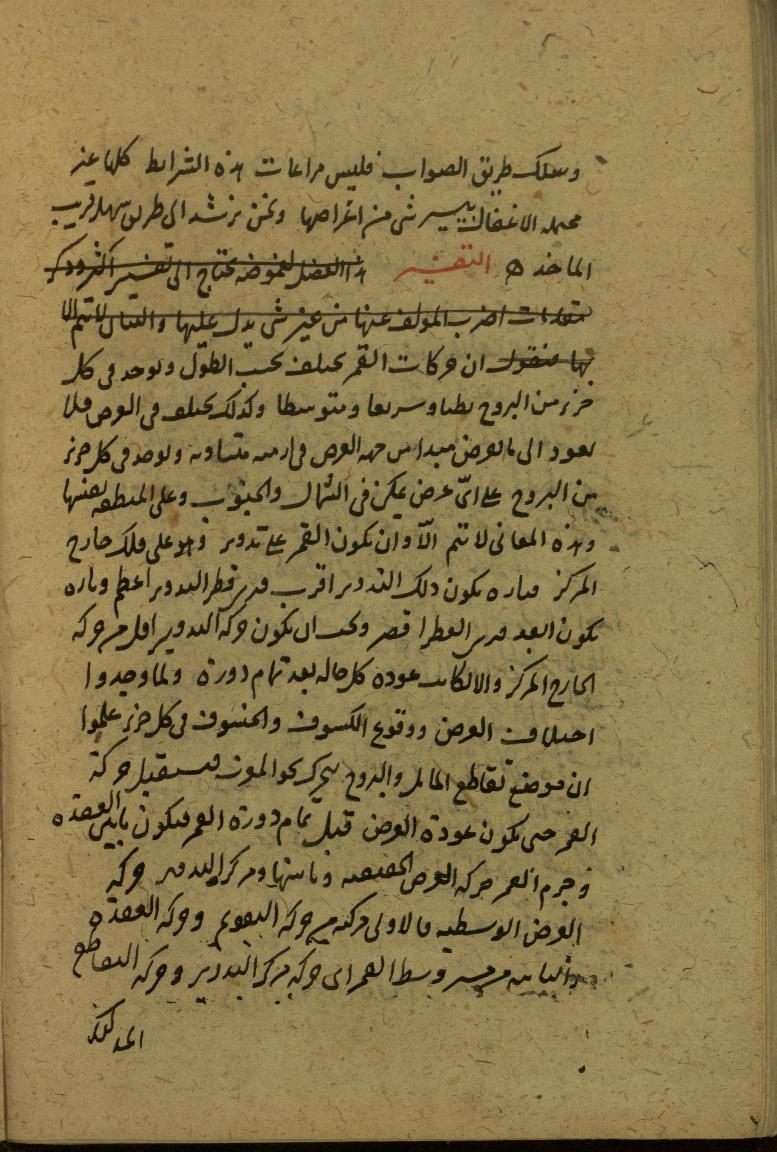 وسلك طريق الصواب فليس مراعات هذه الشرايط كلها عند
محمله الاغفال بيسير شى من اغراضها ونحن نرشد الى طريق سهل قريب
الماخذ ه التفسير هذا الفصل لغموضه يحتاج الى تفسير اكثر وذكر
مقدمات اضرب المولف عنها من غير شى يدل عليها والبيان لا يتم الا
بها فنقول ان حركات القمر يختلف بحسب الطول ويوجد فى كل
جزء من البروج بطيا وسريعا ومتوسطا وكذلك يختلف فى العرض فلا
يعود الى ما لعرض مبدا من جهه العرض فى ازمنه متساويه ويوجد فى كل جزء
من البروج على اىّ عرض يمكن فى الشمال والجنوب وعلى المنطقه بعينها
وهذه المعانى لا تتم الّا وان يكون القمر على تدوير وهو على فلك خارج
المركز فتاره يكون ذلك التدوير اقرب فيرى قطر التدوير اعظم وتاره
يكون ابعد فيرى القطر اقصر ويجب ان يكون حركه التدوير اقل من حركه
الخارج المركز والا لكانت عوده كل حاله بعد تمام دورة ولما وجدوا
اختلاف العرض ووقوع الكسوف والخسوف فى كل جزء علموا
ان موضع تقاطع المايل والبروج يتحرك نحو المغرب فيستقبل حركة
القمر حتى يكون عودة العرض قبل تمام دورة القمر فيكون ما بين العقده
وجرم القمر حركه العرض الحقيقيه وما بينها ومركز التدوير حركه
العرض الوسطيه فالاولى مركبه من حركه التقويم وحركه العقده
والثانيه من مسير وسط القمر اى حركه مركز التدوير وحركه التقاطع